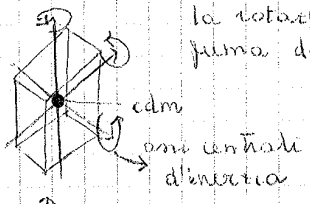 la rotaz
prima d
cdm
assi centrali
d'inerzia